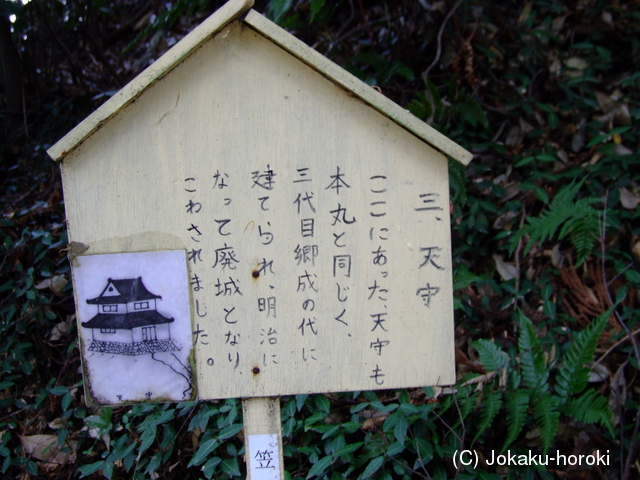 三、天守
ここにあった、天守も
本丸と同じく、
三代目郷成の代に
建てられ、明治に
なって廃城となり、
こわされました。
天守
笠
(C) Jokaku-horoki